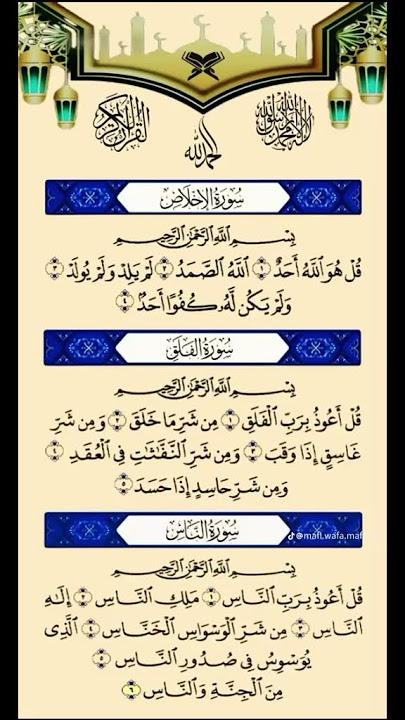 القرآن الكريم
الحمد لله
لا إله إلا الله محمد رسول الله
سُورَةُ الإِخْلَاصِ
بِسْمِ ٱللَّهِ ٱلرَّحْمَٰنِ ٱلرَّحِيمِ
قُلْ هُوَ ٱللَّهُ أَحَدٌ ١ ٱللَّهُ ٱلصَّمَدُ ٢ لَمْ يَلِدْ وَلَمْ يُولَدْ ٣
وَلَمْ يَكُن لَّهُۥ كُفُوًا أَحَدٌۢ ٤
سُورَةُ الفَلَقِ
بِسْمِ ٱللَّهِ ٱلرَّحْمَٰنِ ٱلرَّحِيمِ
قُلْ أَعُوذُ بِرَبِّ ٱلْفَلَقِ ١ مِن شَرِّ مَا خَلَقَ ٢ وَمِن شَرِّ
غَاسِقٍ إِذَا وَقَبَ ٣ وَمِن شَرِّ ٱلنَّفَّٰثَٰتِ فِي ٱلْعُقَدِ ٤
وَمِن شَرِّ حَاسِدٍ إِذَا حَسَدَ ٥
سُورَةُ النَّاسِ
@mafl.wafa.maf
بِسْمِ ٱللَّهِ ٱلرَّحْمَٰنِ ٱلرَّحِيمِ
قُلْ أَعُوذُ بِرَبِّ ٱلنَّاسِ ١ مَلِكِ ٱلنَّاسِ ٢ إِلَٰهِ
ٱلنَّاسِ ٣ مِن شَرِّ ٱلْوَسْوَاسِ ٱلْخَنَّاسِ ٤ ٱلَّذِي
يُوَسْوِسُ فِي صُدُورِ ٱلنَّاسِ ٥
مِنَ ٱلْجِنَّةِ وَٱلنَّاسِ ٦